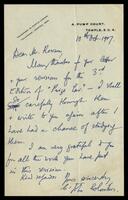 4, PUMP COURT,
TEMPLE, E.C.4.
Dear Mr.
Many thanks for your letter
& your revision for the 3rd
Edition of "Prize Law" - I shall
carefully through them
& write to you again after I
have had a chance of studying
them.
I am very grateful to you
for all the work you have put
in this revision